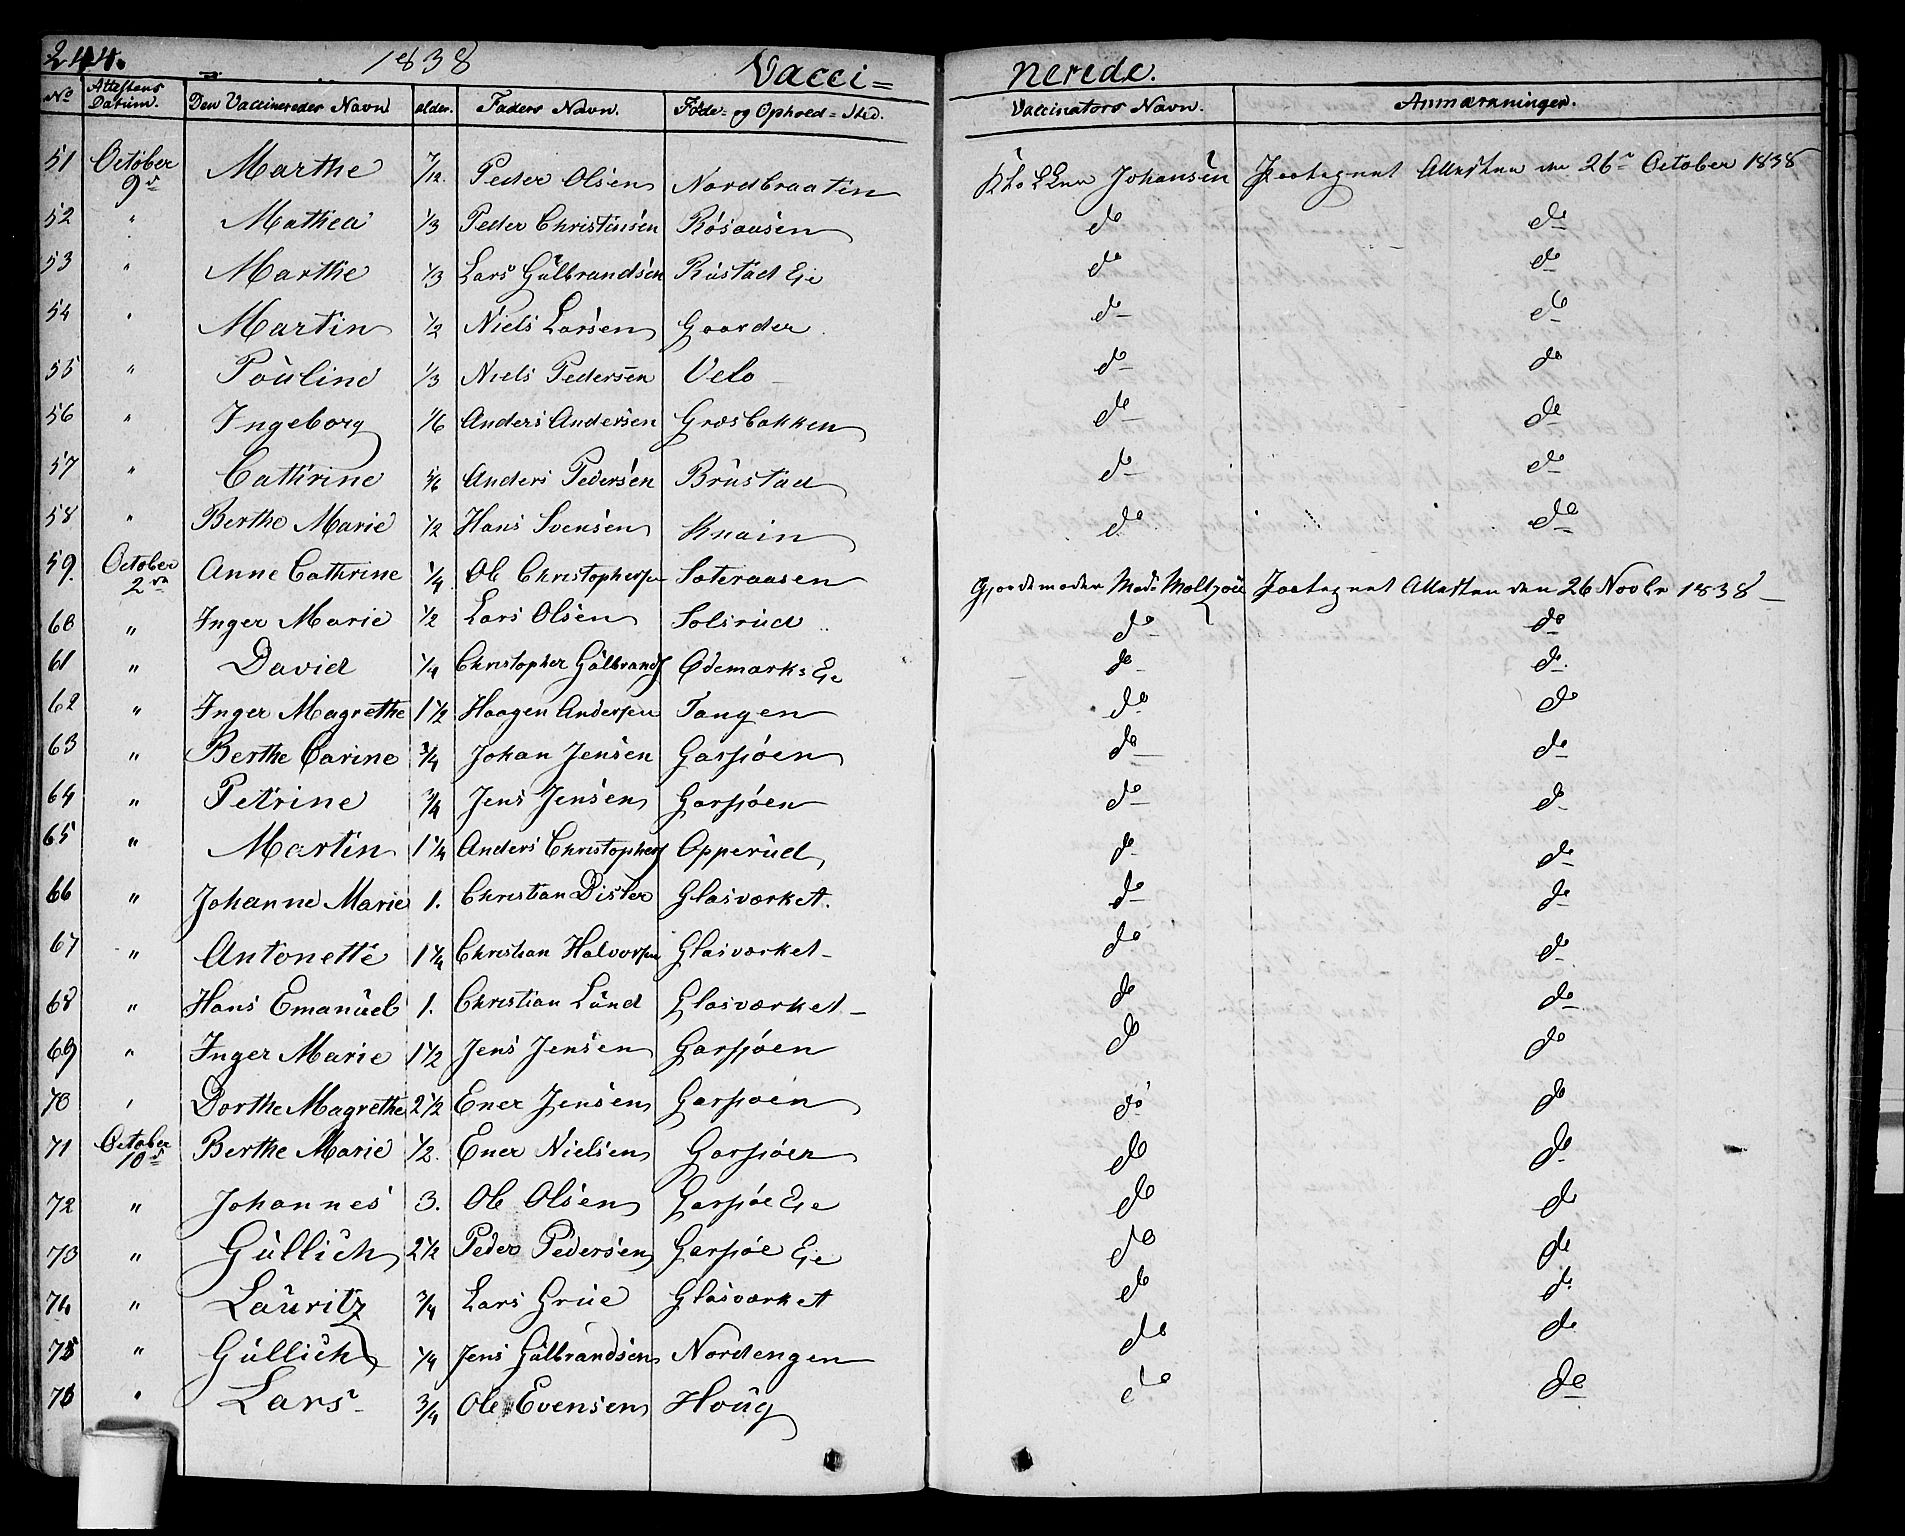 244.
1838
Vacci=
nerede.
No Attestens Datum. Den Vaccineredes Navn alder. Faders Navn. Föde- og Ophold=Sted. Vaccinators Navn. Anmærkninger.
51 October 9d Marthe 7/12. Peder Olsen Nordbraaten Johansen Attesten den 26 October 1838
52 " Mathea 1/3 Peder Christensen Rösaasen do do
53 " Marthe 1/3 Lars Gülbrandsen Rüstad Eje do do
54 " Martin 1/2 Niels Larsen Gaarder do do
55 " Pauline 1/3 Niels Pedersen Velo do do
56 " Ingeborg 1/6 Anders Andersen Græsbakken do do
57 " Cathrine 5/6 Anders Pedersen Brüstad do do
58 " Berthe Marie 1/2 Hans Svensen Knain do do
59. October 2den Anne Cathrine 1/4 Ole Christophersen Sæteraasen Gjordemoder Mad: Moltzau Attesten den 26 Novbr 1838
60 " Inger Marie 1/2 Lars Olsen Solsrüd do do
61 " David 1/4 Christopher Gülbrands Ödemarks Eje do do
62 " Inger Magrethe 1 1/2 Haagen Andersen Tangen do do
63 " Berthe Carine 3/4 Johan Jensen Garsjöen do do
64 " Petrine 3/4 Jens Jensen Garsjöen do do
65 " Martin 1 1/4 Anders Christophers Opperüd do do
66 " Johanne Marie 1. Christian Disler Glasværket. do do
67 " Antonette 1 1/4 Christian Halvorsen Glasværket do do
68 " Hans Emanüel 1. Christian Lünd Glasværket do do
69 " Inger Marie 1 1/2 Jens Jensen Garsjöen do do
70 " Dorthe Magrethe 2 1/2 Ener Jensen Garsjöen do do
71 October 10d Berthe Marie 1/2. Ener Nielsen Garsjöen do do
72 " Johannes 3. Ole Olsen Garsjöe Eje do do
73 " Güllich 2 1/2 Peder Pedersen Garsjöe Eje do do
74 " Laüritz 3/4 Lars Grüe Glasværket do do
75 " Güllich 1/4 Jens Gülbrandsen Nordengen do do
76 " Lars 3/4 Ole Evensen Hoüg do do